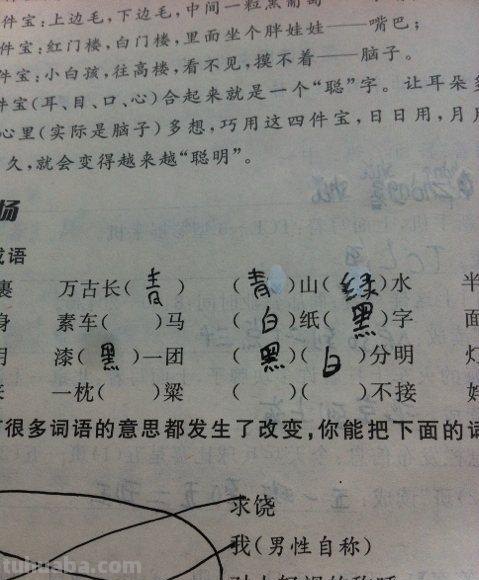 件宝:上边毛,下边毛,中间一粒黑葡萄
件宝:红门楼,白门楼,里面坐个胖娃娃——嘴巴;
件宝:小白孩,往高楼,看不见,摸不着——脑子。
件宝(耳、目、口、心)合起来就是一个“聪”字。让耳朵多
心里(实际是脑子)多想,巧用这四件宝,日日用,月月
久,就会变得越来越“聪明”。
场
成语
裹 万古长(青) (青)山(绿)水 半
身 素车( )马 (白)纸(黑)字 面
明 漆(黑)一团 (黑)(白)分明 灯
来 一枕( )粱 ( )( )不接 好
很多词语的意思都发生了改变,你能把下面的词
求饶
我(男性自称)
tuhuaba.com